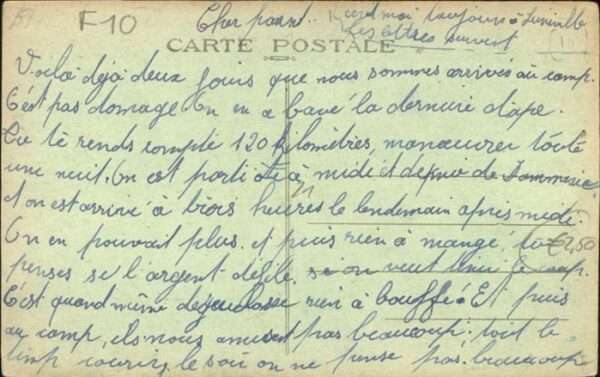 F10
Cher parrd. Ecrit moi toujours à Lunéville
les lettres suivent
CARTE POSTALE
Voilà déjà deux jours que nous sommes arrivés au camp.
C'est pas domage On en a bavé la dernière étape.
Tu te rends compte 120 kilomètres, manœuvrer toute
une nuit. On est parti à midi et depuis de
et on est arrivé à trois heures le lendemain après midi.
On en pouvait plus. et puis rien à mangé, tu
€2,50
penses se l'argent défile. si on veut tenir le coup.
C'est quand même rien à bouffé. Et puis
au camp, ils nous amusent pas beaucoup. tout le
temp courir, le soir on ne pense pas beaucoup